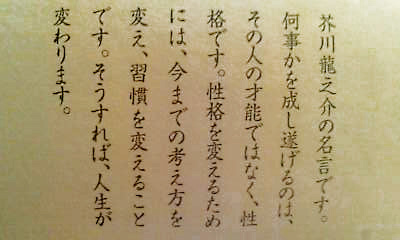 芥川龍之介の名言です。
何事かを成し遂げるのは、
その人の才能ではなく、性
格です。性格を変えるため
には、今までの考え方を
変え、習慣を変えること
です。そうすれば、人生が
変わります。